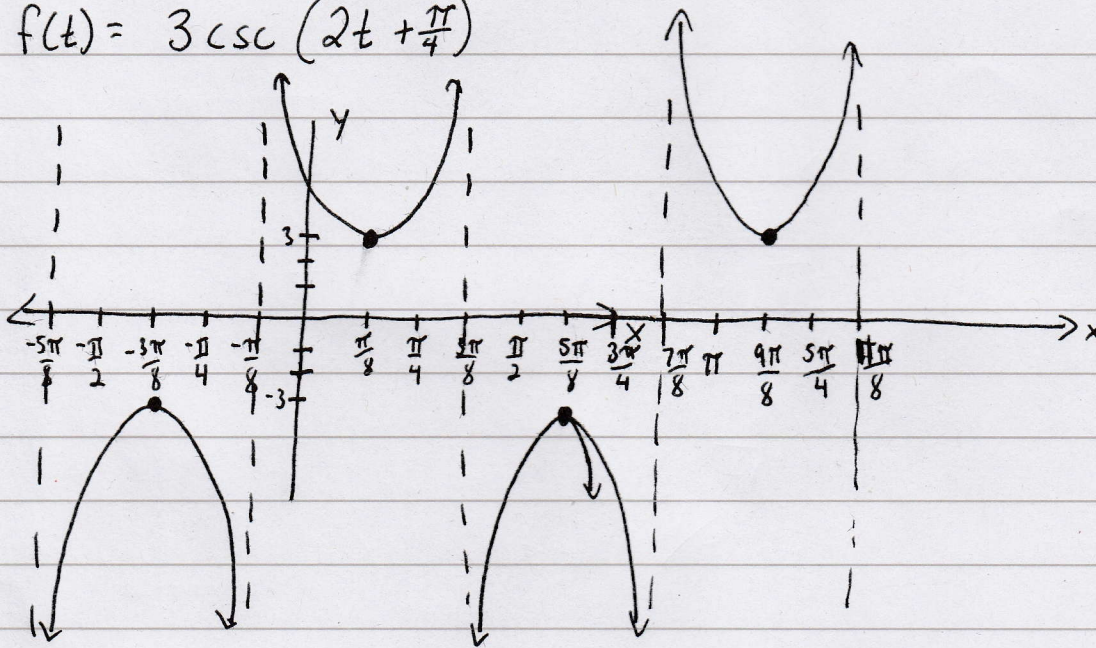 f(t) = 3 csc (2t + π/4)
y
3
x
x
-5π/8 -π/2 -3π/8 -π/4 -π/8 π/8 π/4 3π/8 π/2 5π/8 3π/4 7π/8 π 9π/8 5π/4 11π/8
-3